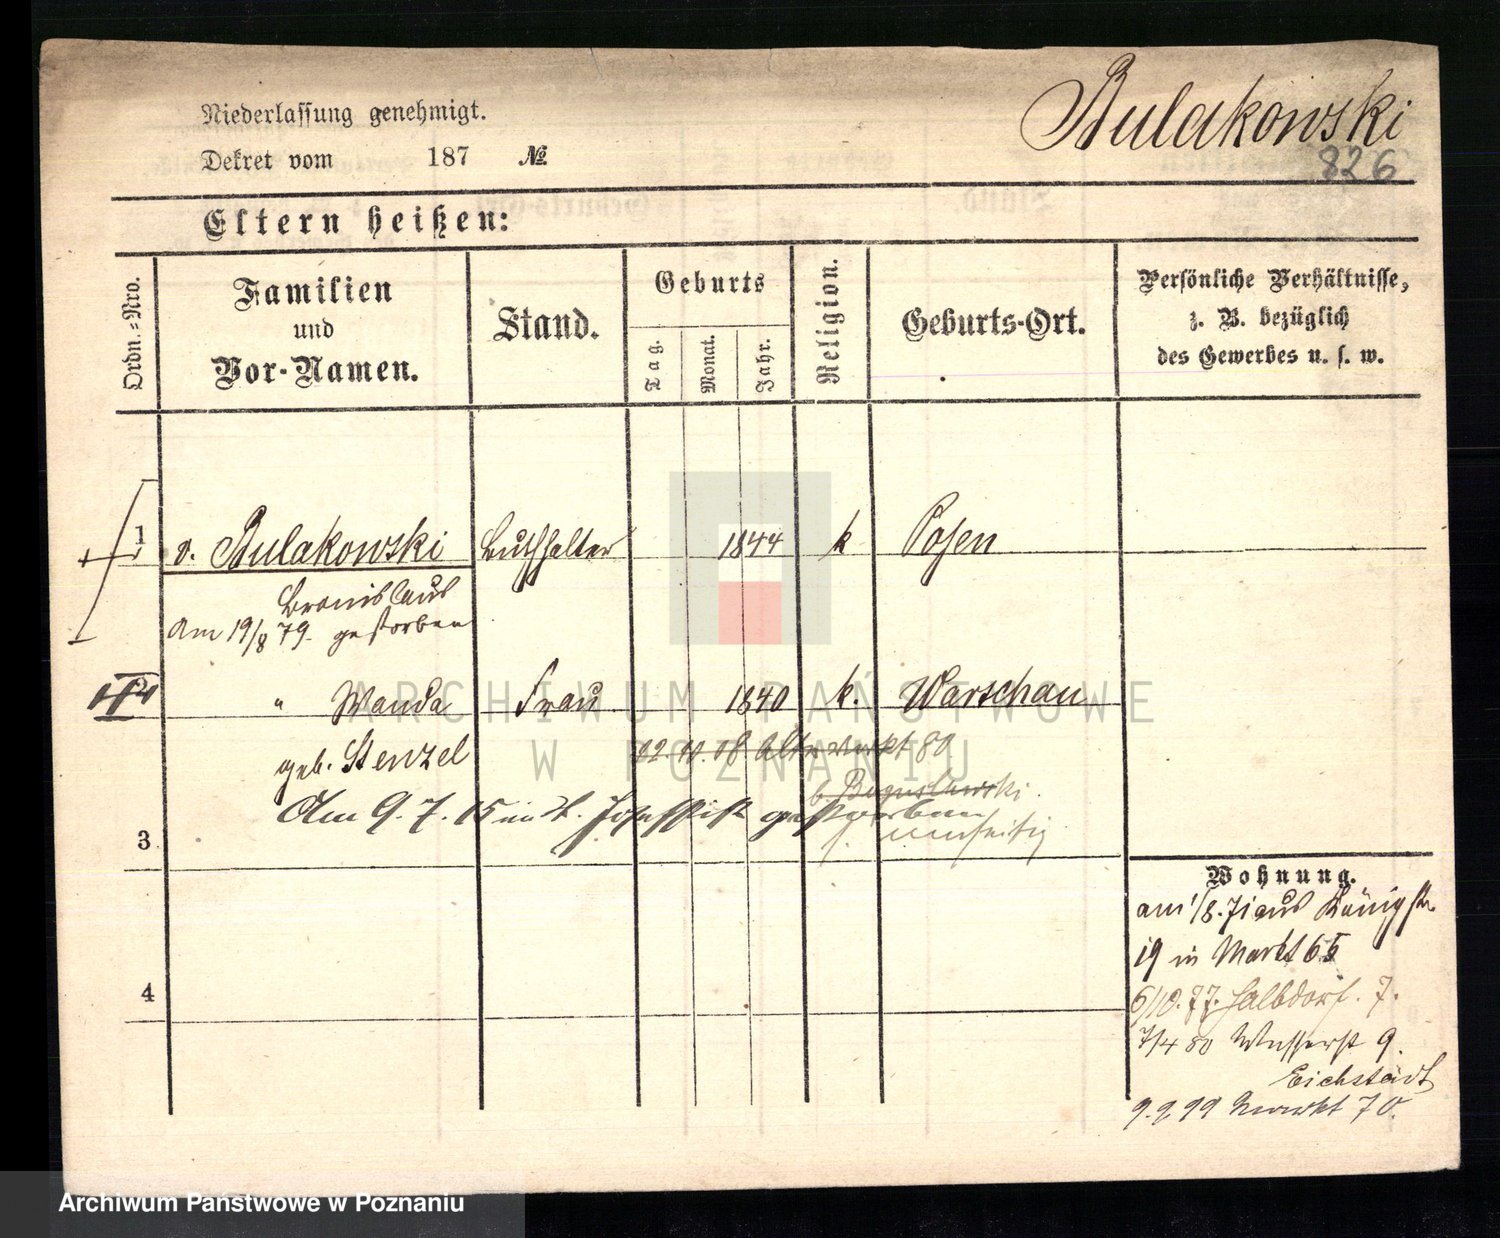 Bulakowski
826
Niederlassung genehmigt.
Dekret vom 187 №
Eltern heißen:
Ordn.=Nro.
Familien
und
Vor-Namen.
Stand.
Geburts
Tag.
Monat.
Jahr.
Religion.
Geburts-Ort.
Persönliche Verhältnisse,
z. B. bezüglich
des Gewerbes u. s. w.
1 v. Bulakowski Buchhalter 1844 k Posen
Bronislaus
am 19/8 79. gestorben
" Wanda Frau 1840 k. Warschau
geb. Stenzel
Alte Markt 80
b. Boguslawski.
Am 9. 7. 15 im St. Josephstift gestorben
3
4
Wohnung.
am 1/8. 71 aus Königstr.
19 in Markt 65
6/10. 77. Halbdorf. 7.
7/4 80 Wasserst 9.
Eichstädt
9. 9. 99 Markt 70.
ARCHIWUM PAŃSTWOWE
W POZNANIU
Archiwum Państwowe w Poznaniu